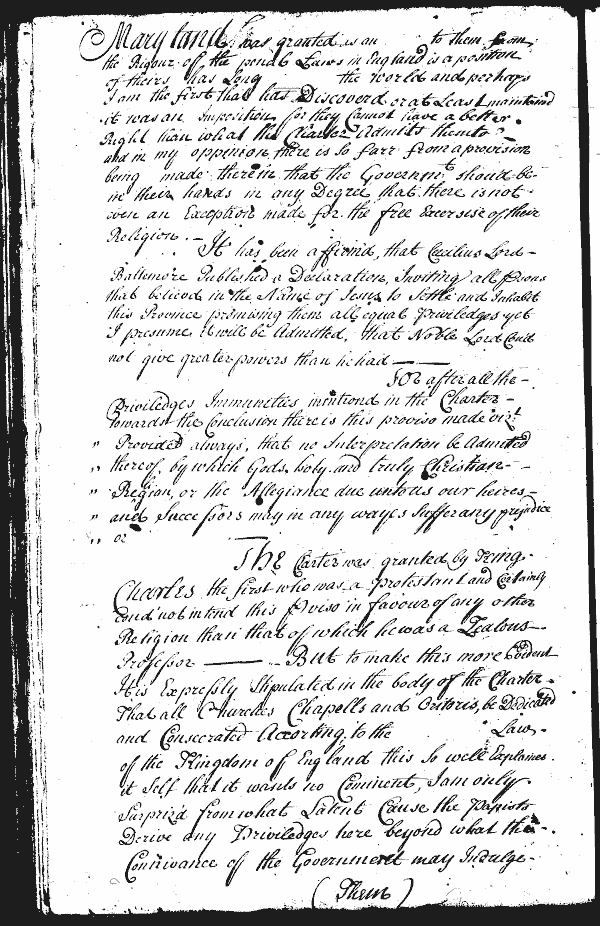 Maryland was granted as an to them from
the Rigour of the penal Laws in England is a position
of theirs has Long the world and perhaps
I am the first that has Discoverd or at Least maintaind
it was an Imposition for they Cannot have a better
Right than what the Charter Admits them to
and in my oppinion there is so farr from a provision
being made therein that the Governmt should be
in their hands in any Degree that there is not
even an Exception made for the free Exersise of their
Religion. - It has been affirmd, that Cæcilius Lord -
Baltemore Published a Declaration, Inviting all Persons
that believed in the Name of Jesus to Settle and Inhabit
this Province promising them all equal Priviledges yet
I presume it will be Admitted, that Noble Lord Coud
not give greater powers than he had ——
for after all the -
Priviledges Immuneties mentiond in the Charter -
towards the Conclusion there is this proviso made vizt
" Provided always, that no Interpretation be Admitted
" thereof, by which Gods holy and truly Christian -
" Region, or the Allegiance due unto us our heires -
" and Successors may in any wayes Suffer any prejudice
" or
The Carter was granted by King
Charles the first who was a Protestant and Certainly
coud not intend this Proviso in favour of any other
Religion than that of which he was a Zealous
Professor —— But to make this more Evident
It is Expressly Stipulated in the body of the Charter
That all Churches Chapells and Oratoris, be Dedicated
and Consecrated According to the Law,
of the Kingdom of England this so well Explaines
it Self that it wants no Comment, I am only
Surpriz'd from what Latent Cause the Papists
Derive any Priviledges here beyond what the
Connivance of the Government may Indulge
(Them)